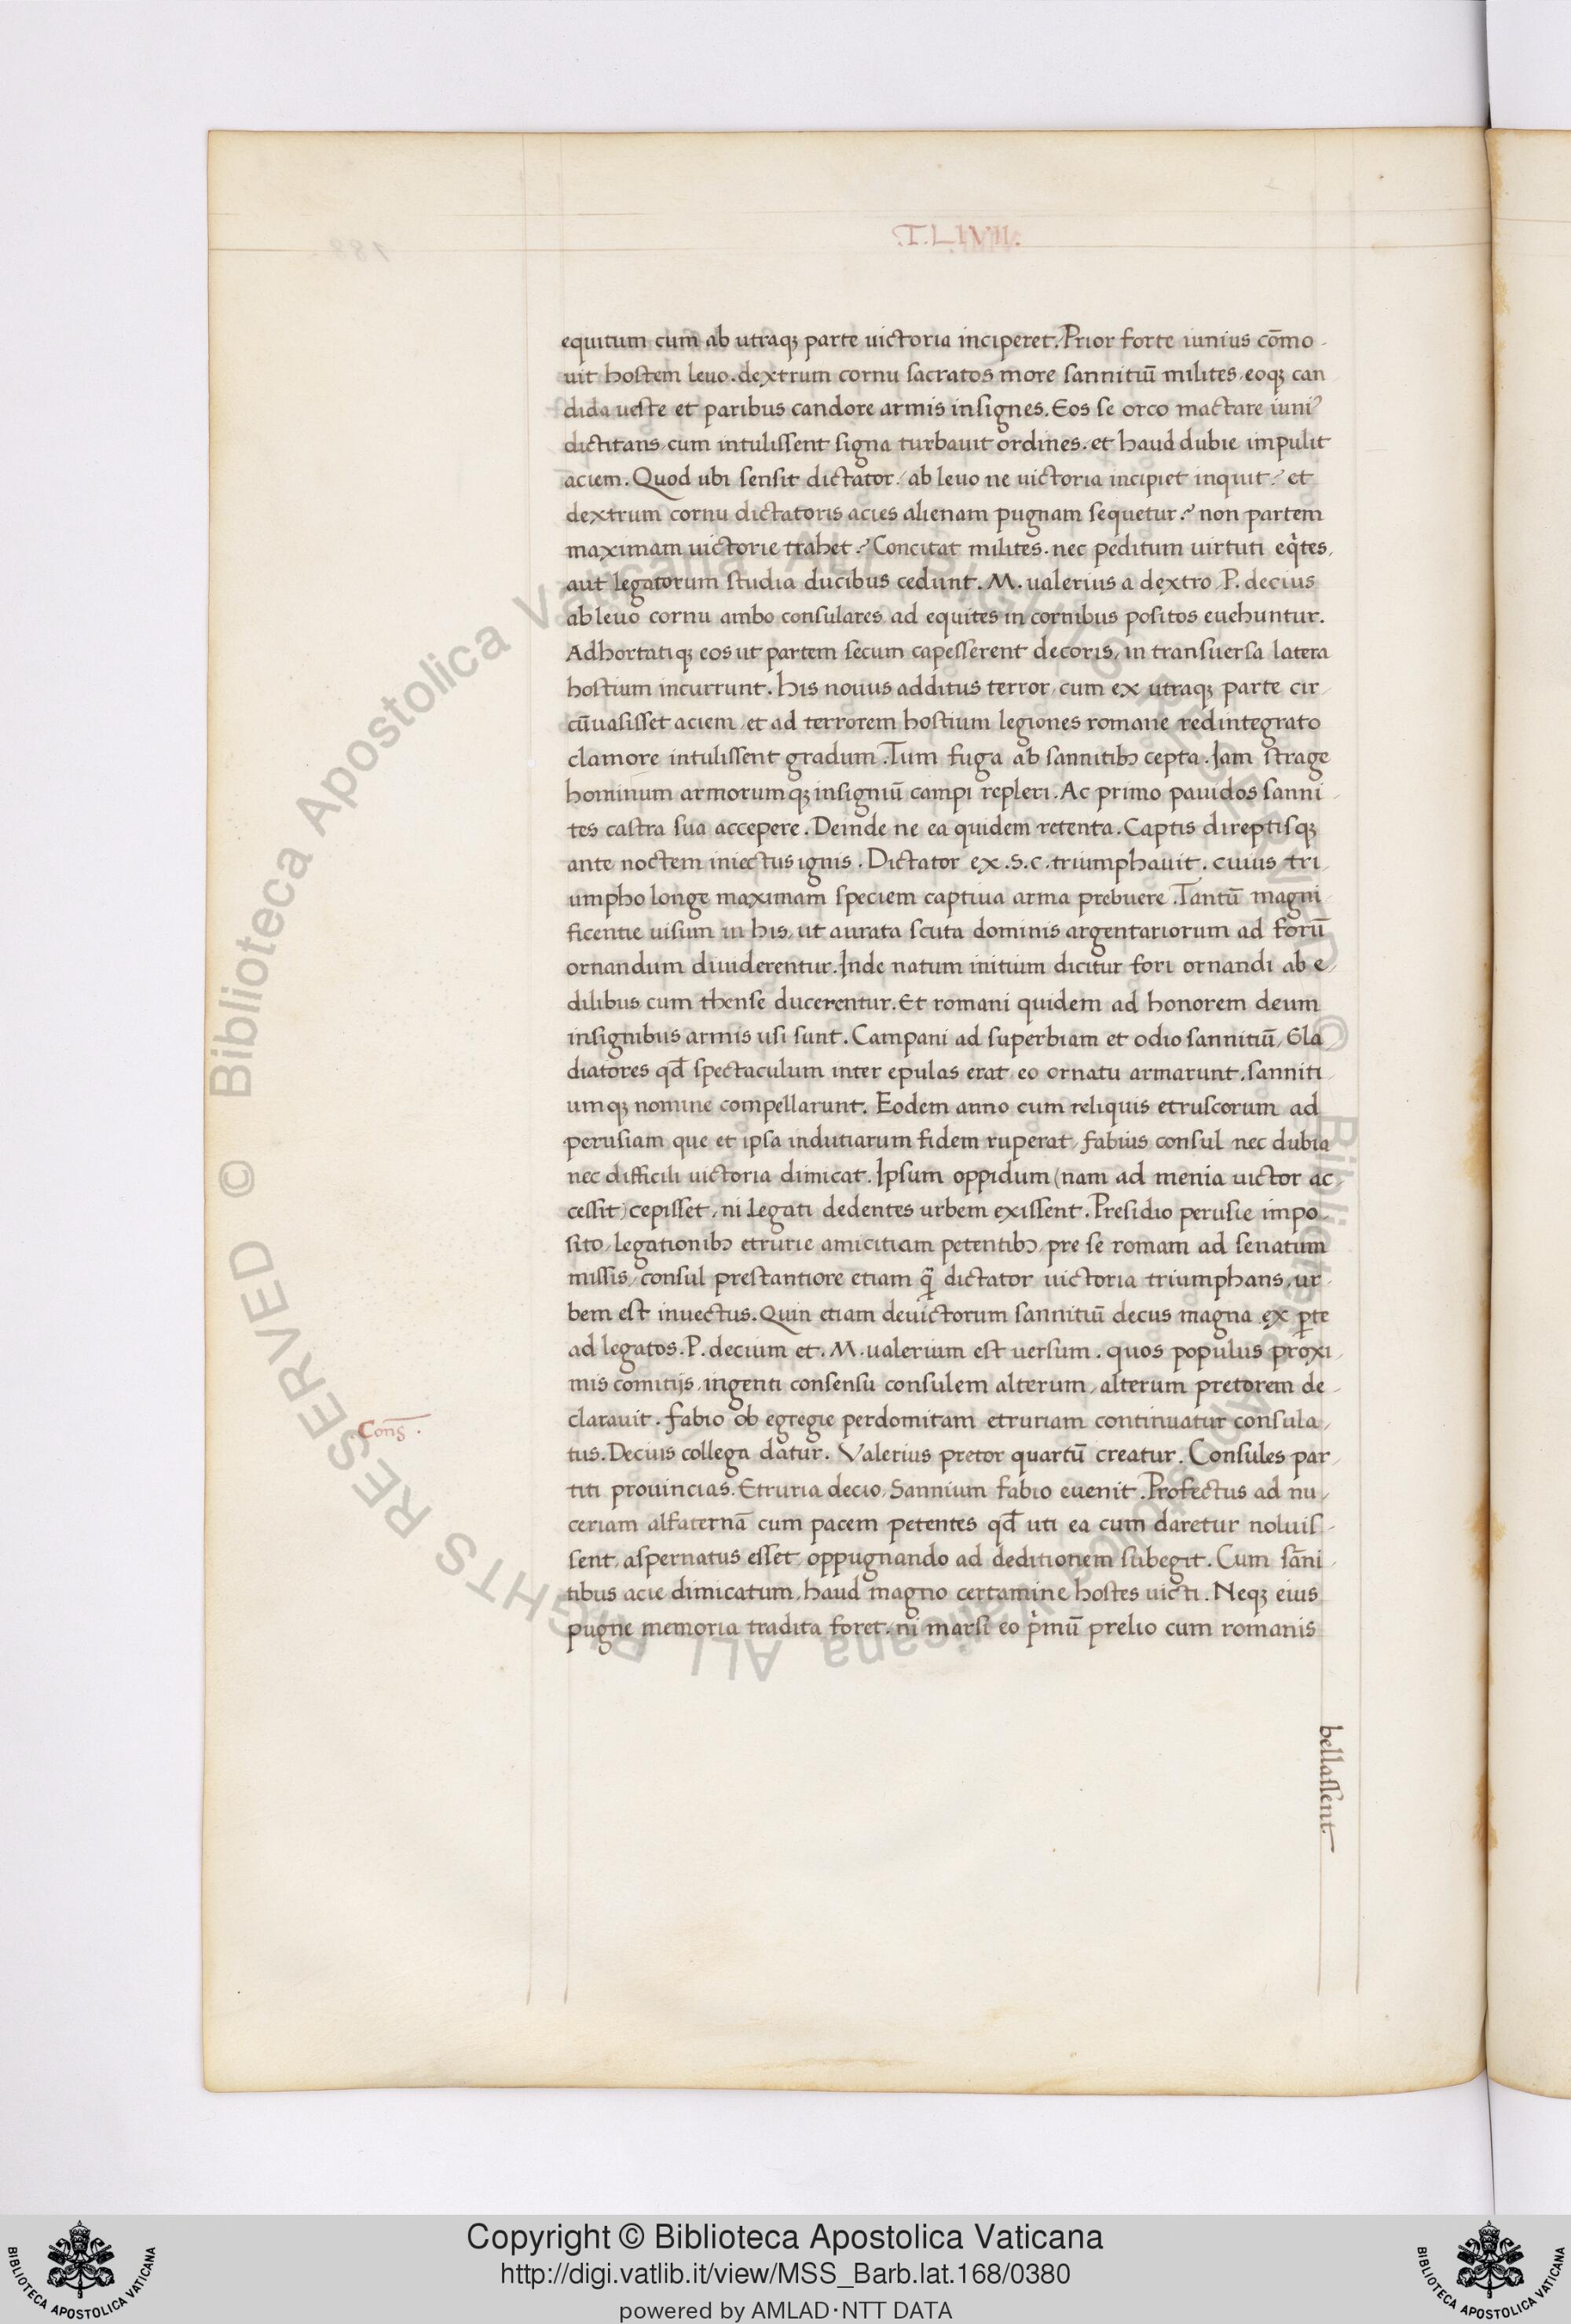 .T.LIVII.
equitum cum ab utraqꝫ parte uictoria inciperet. Prior forte iunius cōmo
uit hostem leuo. dextrum cornu sacratos more sannitiū milites. eoqꝫ can
dida ueste et paribus candore armis insignes. Eos se orco mactare iuniꝰ
dictitans cum intulissent signa turbauit ordines. et haud dubie impulit
aciem. Quod ubi sensit dictator / ab leuo ne uictoria incipiet inquit? et
dextrum cornu dictatoris acies alienam pugnam sequetur? non partem
maximam uictorie trahet? Concitat milites. nec peditum uirtuti eqͥtes,
aut legatorum studia ducibus cedunt. M. ualerius a dextro, P. decius
ab leuo cornu ambo consulares ad equites in cornibus positos euehuntur.
Adhortatiqꝫ eos ut partem secum capesserent decoris, in transuersa latera
hostium incurrunt. his nouus additus terror, cum ex utraqꝫ parte cir
cūuasisset aciem, et ad terrorem hostium legiones romane redintegrato
clamore intulissent gradum. Tum fuga ab sannitibꝫ cepta. Iam strage
hominum armorumqꝫ insigniū campi repleri. Ac primo pauidos sanni
tes castra sua accepere. Deinde ne ea quidem retenta. Captis direptisqꝫ
ante noctem iniectus ignis. Dictator ex .S.C. triumphauit. cuius tri
umpho longe maximam speciem captiua arma prebuere. Tantū magni
ficentie uisum in his, ut aurata scuta dominis argentariorum ad forū
ornandum diuiderentur. Inde natum initium dicitur fori ornandi ab e
dilibus cum thense ducerentur. Et romani quidem ad honorem deum
insignibus armis usi sunt. Campani ad superbiam et odio sannitiū, Gla
diatores qđ spectaculum inter epulas erat eo ornatu armarunt, sanniti
umqꝫ nomine compellarunt. Eodem anno cum reliquis etruscorum ad
perusiam que et ipsa indutiarum fidem ruperat, fabius consul nec dubia
nec difficili uictoria dimicat. Ipsum oppidum (nam ad menia uictor ac
cessit) cepisset, ni legati dedentes urbem exissent. Presidio perusie impo
sito, legationibꝫ etrurie amicitiam petentibꝫ pre se romam ad senatum
missis, consul prestantiore etiam q̃ dictator uictoria triumphans, ur
bem est inuectus. Quin etiam deuictorum sannitiū decus magna ex ꝑte
ad legatos. P. decium et. M. ualerium est uersum. quos populus proxi
mis comitijs, ingenti consensu consulem alterum, alterum pretorem de
clarauit. fabio ob egregie perdomitam etruriam continuatur consula
.Cons̄.
tus. Decius collega datur. Valerius pretor quartū creatur. Consules par
titi prouincias. Etruria decio, Sannium fabio euenit. Profectus ad nu
ceriam alfaternā cum pacem petentes qđ uti ea cum daretur noluis
sent, aspernatus esset, oppugnando ad deditionem subegit. Cum sāni
tibus acie dimicatum, haud magno certamine hostes uicti. Neqꝫ eius
pugne memoria tradita foret, ni marsi eo pͥmū prelio cum romanis
bellassent.
© Biblioteca Apostolica Vaticana ALL RIGHTS RESERVED
Copyright © Biblioteca Apostolica Vaticana
http://digi.vatlib.it/view/MSS_Barb.lat.168/0380
powered by AMLAD·NTT DATA
BIBLIOTECA APOSTOLICA VATICANA
BIBLIOTECA APOSTOLICA VATICANA